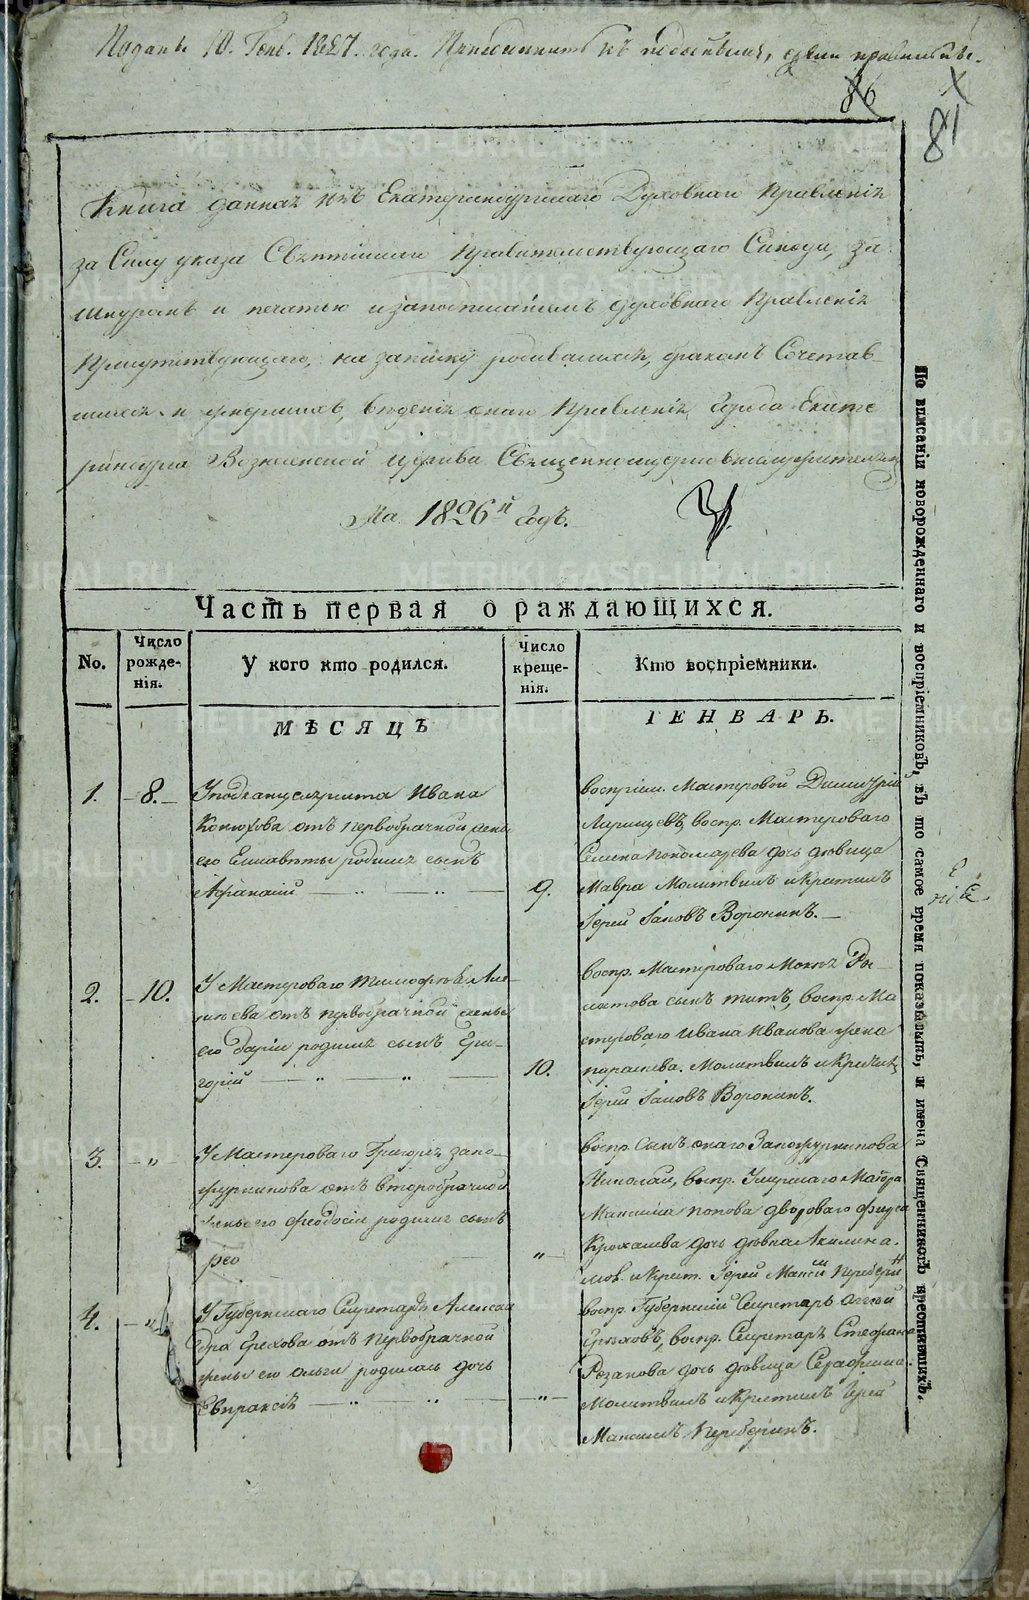 Поданъ 10. Генв. 1827. года.
86
81
Книга данная изъ Екатеринбургскаго Духовнаго Правленія
за Силу указа Святѣйшаго Правительствующаго Синода, за
шнуромъ и печатью и Духовнаго Правленія
Присутствующаго, на записку родившихся, бракомъ Сочетав-
шихся и умершихъ, вѣденія онаго Правленія Града Екате
ринбурга Вознесенской Церкви Священноцерковнослужителямъ
На 1826й годъ.
Часть первая о раждающихся.
No.
Число рожде-нія.
У кого кто родился.
Число креще-нія.
Кто воспріемники.
МѢСЯЦЪ
ІЕНВАРЬ.
1.
8.
У подканцеляриста Ивана
Конюхова отъ первобрачной жены
его Елисаветы родился сынъ
Афанасій
9.
воспріем. Мастеровой Димитрій
Ларинцевъ, воспр. Мастероваго
Семена Пономарева дочь дѣвица
Мавра Молитвилъ и Крестилъ
Іерей Іаковъ Воронинъ.
2.
10.
У Мастероваго Тимофея Але-
ева отъ первобрачной жены
его Дарьи родился сынъ Гри-
горій
10.
воспр. Мастероваго
сынъ Титъ, воспр. Ма
стероваго Ивана Иванова жена
Парасков. Молитвилъ и Крестилъ
Іерей Іаковъ Воронинъ.
3.
"
У Мастероваго Григорья Запо-
журникова отъ второбрачной
жены его Феодосіи родился сынъ
Рео
"
воспр. сынъ онаго Запожурникова
Николай, воспр. Маіора
Максима Попова двороваго
Крохалева дочь дѣвка Акилина.
мов. и Крест. Іерей Максим Переберин
4.
"
У Губернскаго Секретаря Алексан
дра Грехова отъ первобрачной
жены его Ольги родилась дочь
Евпраксія
"
воспр. Губернскій Секретарь
Греховъ, воспр. Секретаря Стефана
Розанова дочь дѣвица Серафима.
Молитвилъ и Крестилъ Іерей
Максимъ Переберинъ.
По вписаніи новорожденнаго и воспріемниковъ, въ то самое время показывать, и имена Священниковъ крестившихъ.
METRIKI.GASO-URAL.RU